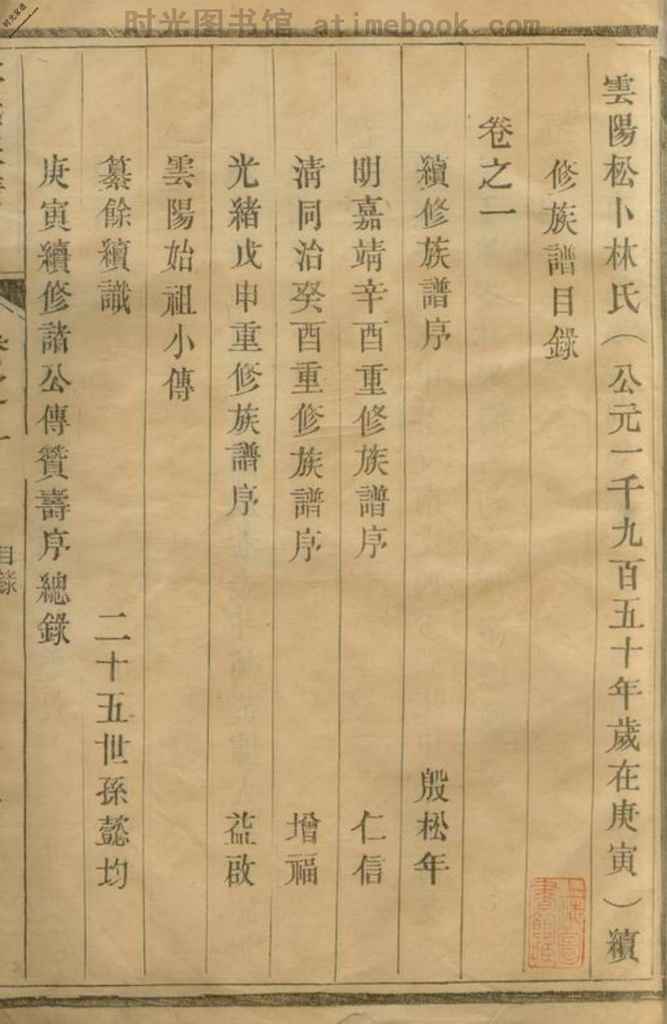 时光图书馆 atimebook.com
雲陽松卜林氏（公元一千九百五十年歲在庚寅）續
修族譜目錄
卷之一
續修族譜序 殷松年
明嘉靖辛酉重修族譜序 仁信
清同治癸酉重修族譜序 增福
光緒戊申重修族譜序 益啟
雲陽始祖小傳
纂餘續識 二十五世孫懿均
庚寅續修諸公傳贊壽序總錄
目錄